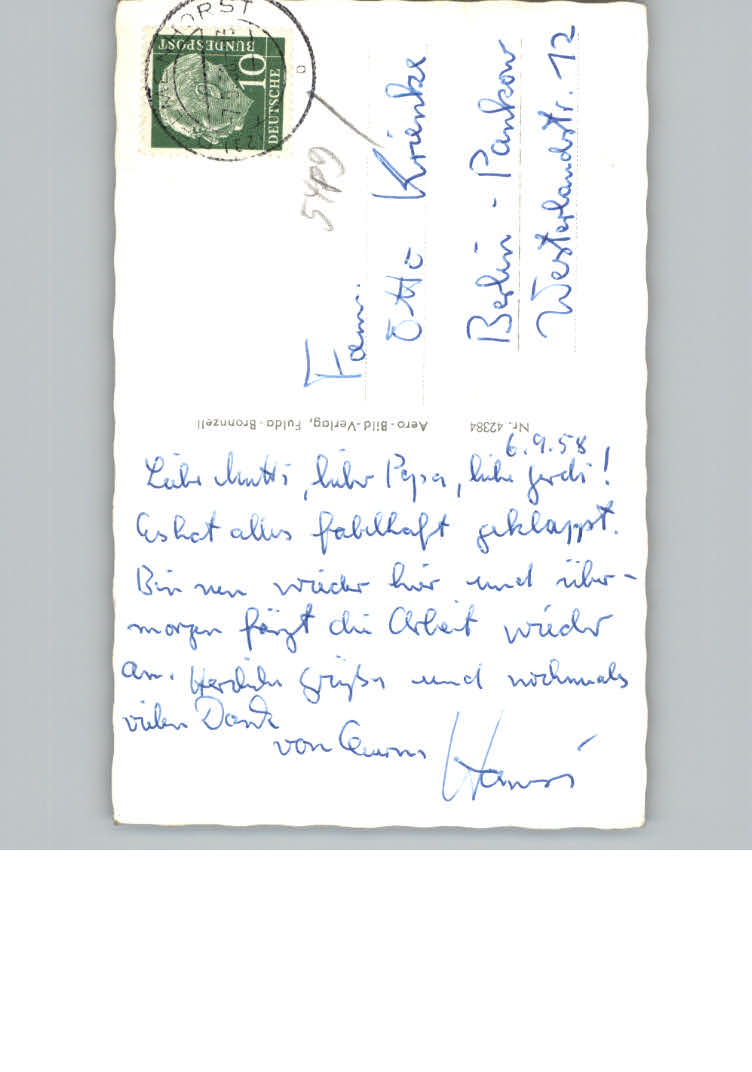 6.9.58
Liebe Mutti, lieber Papa, liebe Gerdi!
Es hat alles fabelhaft geklappt.
Bin nun wieder hier und über-
morgen fängt die Arbeit wieder
an. Herzliche Grüße und nochmals
vielen Dank
von Eurem Hansi
Fam.
Otto Krienke
Berlin - Pankow
Westerlandstr. 12
Aero-Bild-Verlag, Fulda-Bronnzell
Nr. 42384
DEUTSCHE
BUNDESPOST
10
HORST